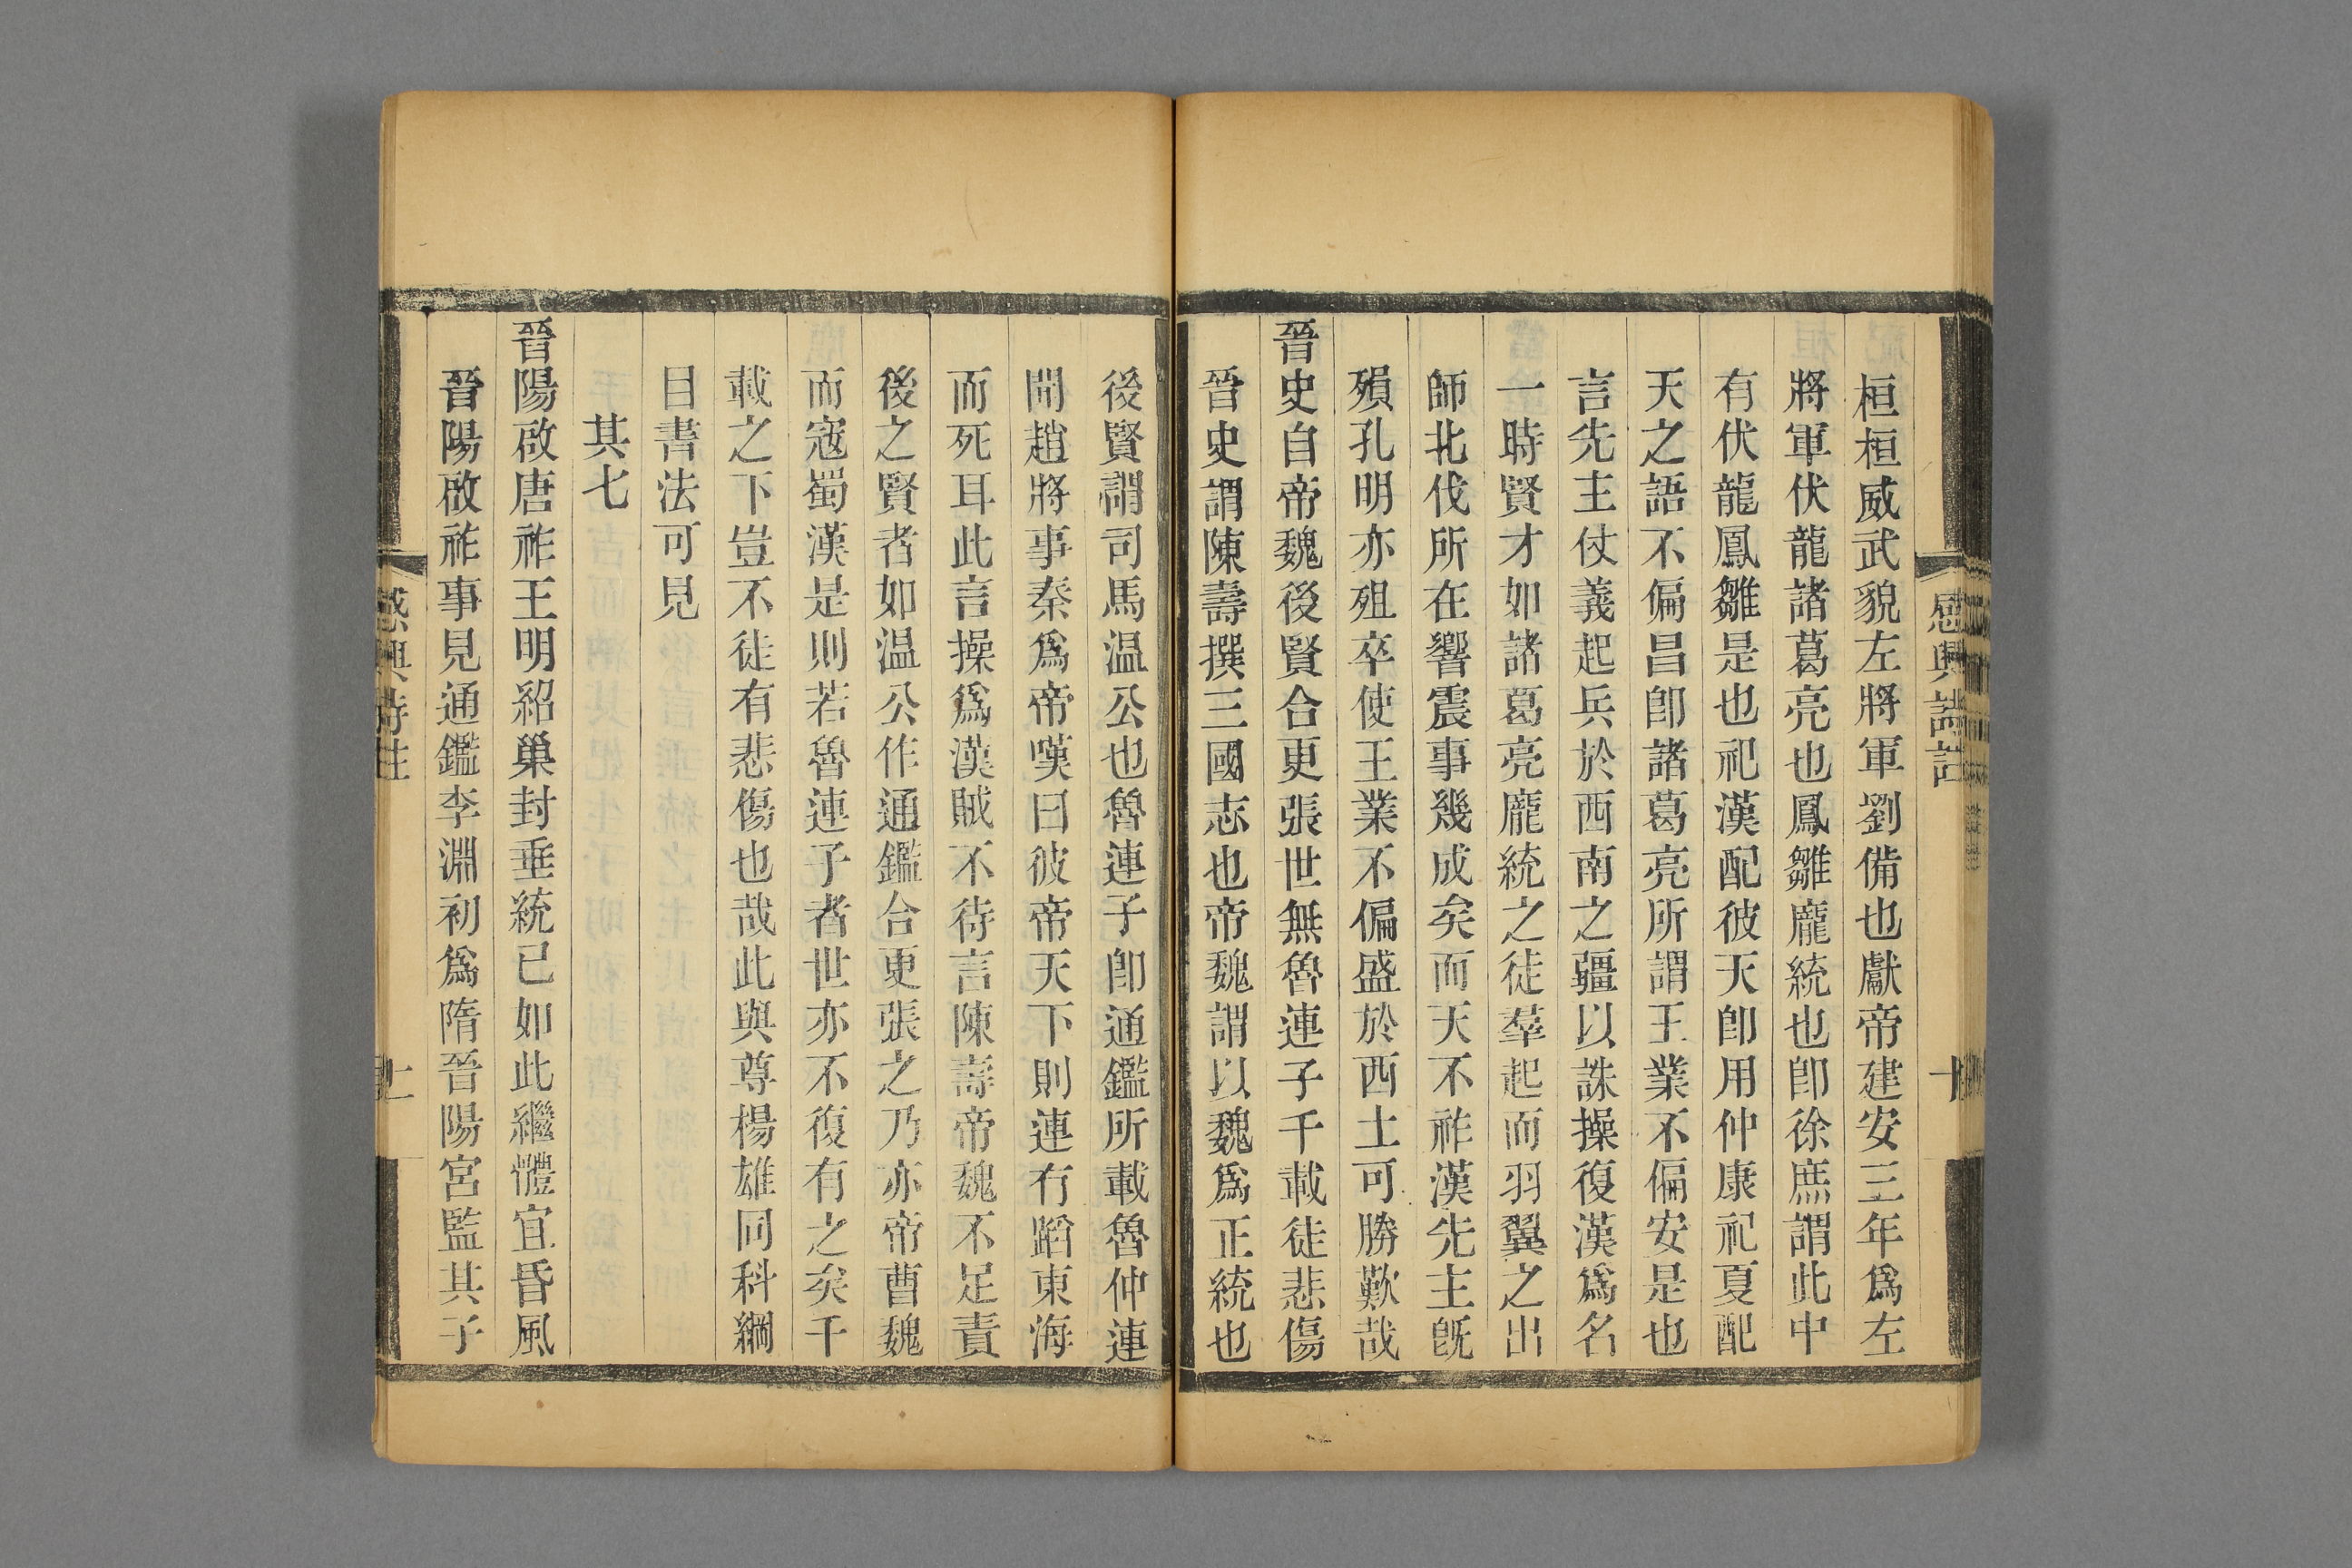 桓桓威武貌左將軍劉備也獻帝建安三年爲左
將軍伏龍諸葛亮也鳳雛龐統也卽徐庶謂此中
有伏龍鳳雛是也祀漢配彼天卽用仲康祀夏配
天之語不偏昌卽諸葛亮所謂王業不偏安是也
言先主仗義起兵於西南之疆以誅操復漢爲名
一時賢才如諸葛亮龐統之徒羣起而羽翼之出
師北伐所在響震事幾成矣而天不祚漢先主旣
殞孔明亦殂卒使王業不偏盛於西土可勝歎哉
晉史自帝魏後賢合更張世無魯連子千載徒悲傷
晉史謂陳壽撰三國志也帝魏謂以魏爲正統也
感興詩註
十
後賢謂司馬温公也魯連子卽通鑑所載魯仲連
聞趙將事秦爲帝嘆曰彼帝天下則連有蹈東海
而死耳此言操爲漢賊不待言陳壽帝魏不足責
後之賢者如温公作通鑑合更張之乃亦帝曹魏
而寇蜀漢是則若魯連子者世亦不復有之矣千
載之下豈不徒有悲傷也哉此與尊楊雄同科綱
目書法可見
其七
晉陽啟唐祚王明紹巢封垂統已如此繼體宜昏風
晉陽啟祚事見通鑑李淵初爲隋晉陽宮監其子
感興詩註